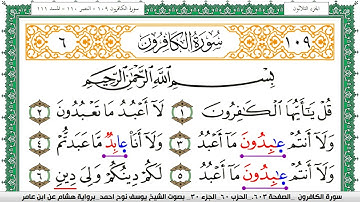 الجزء الثلاثون
سورة الكافرون ١٠٩ - النصر ١١٠ - المسد ١١١
١٠٩ سُورَةُ الْكَافِرُونَ ٦
بِسْمِ اللَّهِ الرَّحْمَٰنِ الرَّحِيمِ
قُلْ يَٰٓأَيُّهَا الْكَٰفِرُونَ ١ لَآ أَعْبُدُ مَا تَعْبُدُونَ ٢
وَلَآ أَنتُمْ عَٰبِدُونَ مَآ أَعْبُدُ ٣ وَلَآ أَنَا۠ عَابِدٌ مَّا عَبَدتُّمْ ٤
وَلَآ أَنتُمْ عَٰبِدُونَ مَآ أَعْبُدُ ٥ لَكُمْ دِينُكُمْ وَلِىَ دِينِ ٦
سورة الكافرون الصفحة ٦٠٣ الحزب ٦٠ الجزء ٣٠ بصوت الشيخ يوسف نوح احمد برواية هشام عن ابن عامر